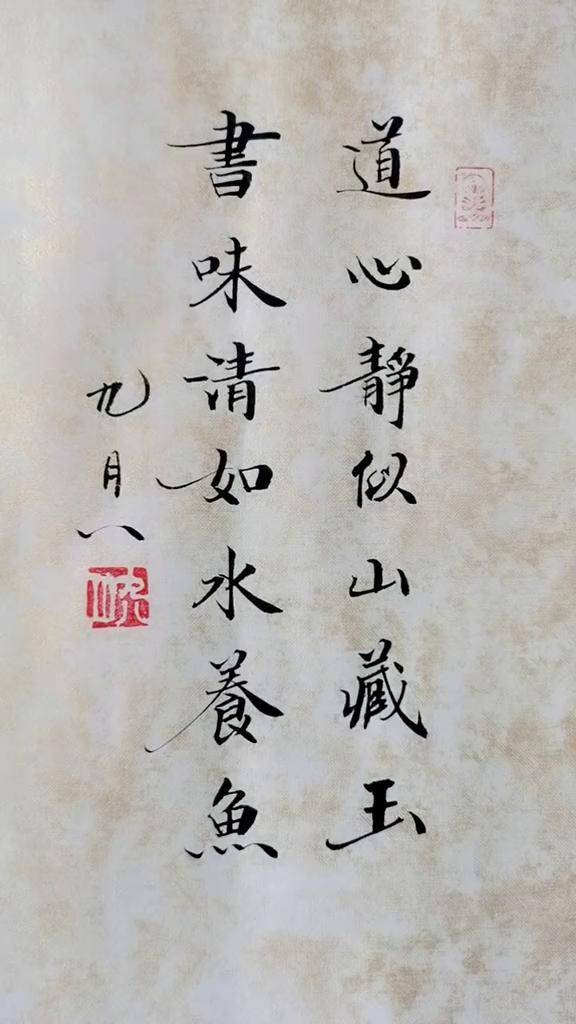 道心靜似山藏玉
書味清如水養魚
九月八